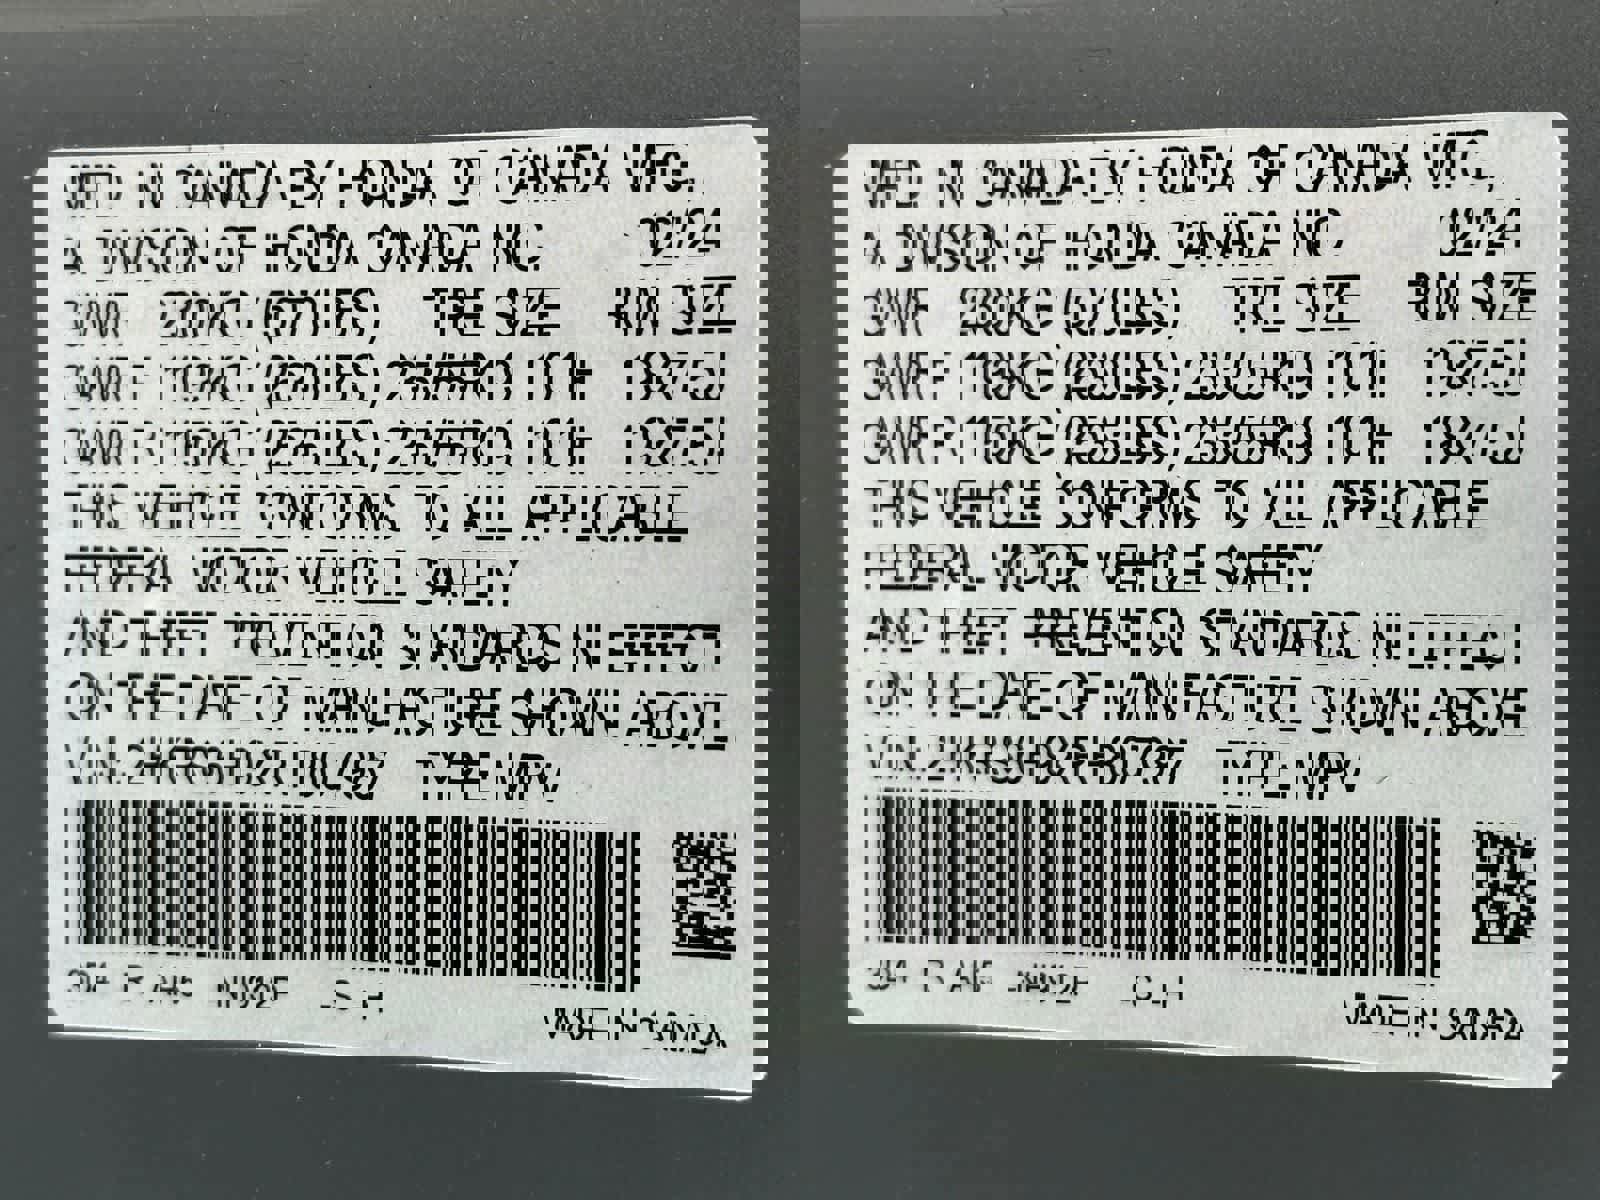 MFD. IN CANADA BY HONDA OF CANADA MFG.,
A DIVISION OF HONDA CANADA INC. 02/24
GVWR TIRE SIZE RIM SIZE
GAWR F 235/55R19 101H 19X7.5J
GAWR R 235/55R19 101H 19X7.5J
THIS VEHICLE CONFORMS TO ALL APPLICABLE
FEDERAL MOTOR VEHICLE SAFETY
AND THEFT PREVENTION STANDARDS IN EFFECT
ON THE DATE OF MANUFACTURE SHOWN ABOVE
V.I.N.: TYPE: MPV
MADE IN CANADA
MFD. IN CANADA BY HONDA OF CANADA MFG.,
A DIVISION OF HONDA CANADA INC. 02/24
GVWR TIRE SIZE RIM SIZE
GAWR F 235/55R19 101H 19X7.5J
GAWR R 235/55R19 101H 19X7.5J
THIS VEHICLE CONFORMS TO ALL APPLICABLE
FEDERAL MOTOR VEHICLE SAFETY
AND THEFT PREVENTION STANDARDS IN EFFECT
ON THE DATE OF MANUFACTURE SHOWN ABOVE
V.I.N.: TYPE: MPV
MADE IN CANADA